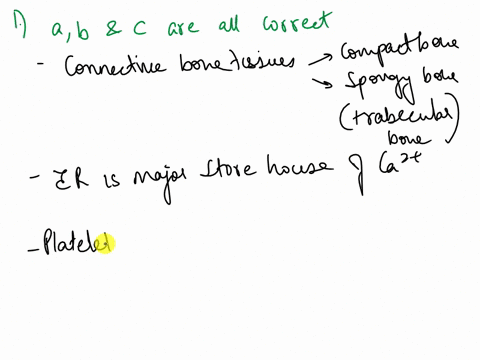 1.) a, b & c are all correct
- Connective bone tissues → Compact bone
→ Spongy bone
(trabecular bone)
- ER is major store house of Ca2+
- Platelet